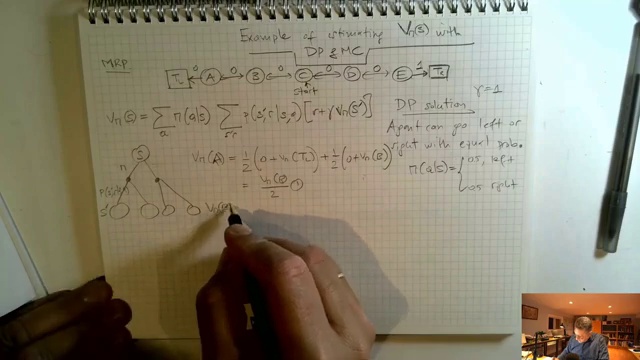 Example of estimating Vπ(s) with
DP & MC
MRP
TL ←0 A →0 B ←0→ C ←0→ D ←0→ E →1 TR
start
γ=1
Vπ(s) = Σa π(a|s) Σs'r p(s'r|s,a) [r+γ Vπ(s')]
DP solution
Agent can go left or
right with equal prob.
π(a|s) = { 0.5 left
0.5 right
Vπ(A) = 1/2 (0+Vπ(TL)) + 1/2 (0+Vπ(B))
= Vπ(B)/2 ①
S
π
S'
Vπ(